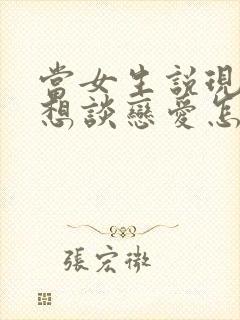 當女生説現
想談戀愛怎
張宏微